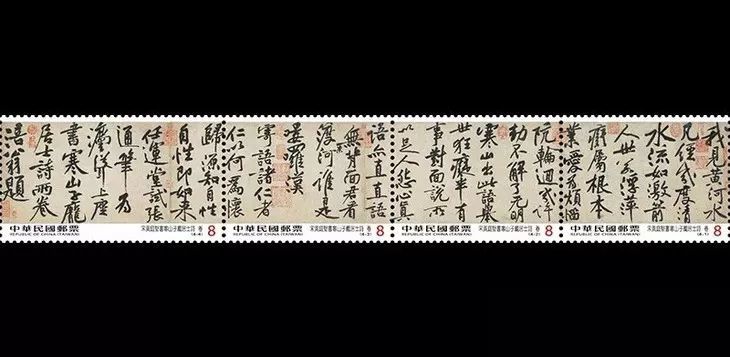 我見黃河水
凡經幾度清
水流如激箭
人世若浮萍
癡屬根本
業愛為煩惱
阬輪迴幾許
劫不解了无明
寒山出此語舉
世狂癡半有
事對面說所
以足人怨心真
語亦直直語
無背面君看
渡奈河誰是
嘍囉漢
寄語諸仁者
仁以何為懷
歸源知自性
自性即如來
任運堂試張
通筆為
上座
書寒山子龐
居士詩兩卷
涪翁題
中華民國郵票
REPUBLIC OF CHINA (TAIWAN)
宋黃庭堅書寒山子龐居士詩 卷
(4-4)
8
中華民國郵票
REPUBLIC OF CHINA (TAIWAN)
宋黃庭堅書寒山子龐居士詩 卷
(4-3)
8
中華民國郵票
REPUBLIC OF CHINA (TAIWAN)
宋黃庭堅書寒山子龐居士詩 卷
(4-2)
8
中華民國郵票
REPUBLIC OF CHINA (TAIWAN)
宋黃庭堅書寒山子龐居士詩 卷
(4-1)
8